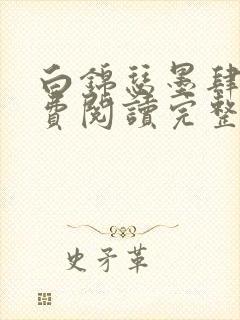 白錦瑟墨肆
費閱讀完整
史矛革